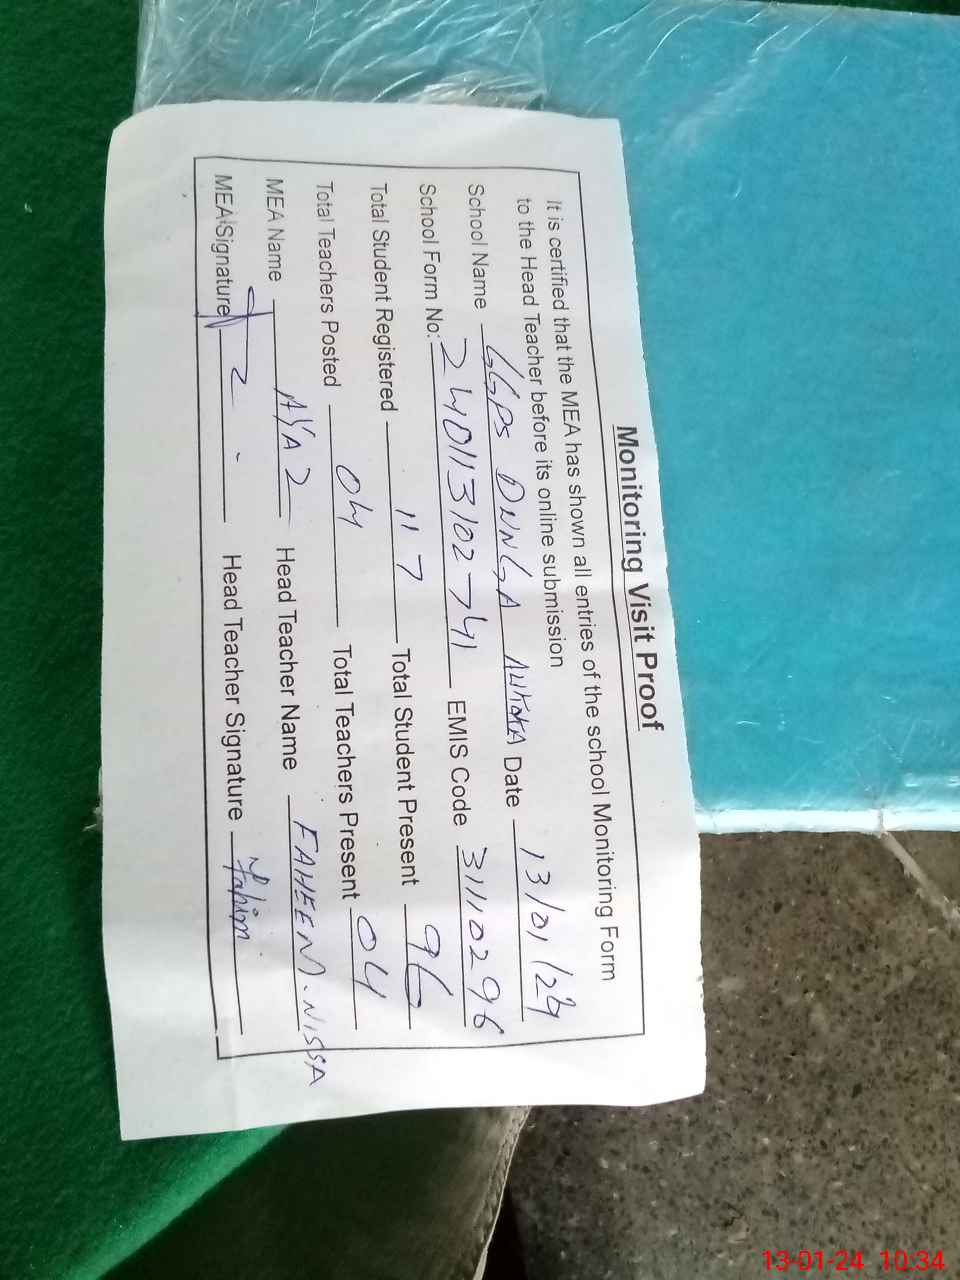 Monitoring Visit Proof
It is certified that the MEA has shown all entries of the school Monitoring Form
to the Head Teacher before its online submission
School Name GGPS DNNGA Date 13/01/24
School Form No: 240113102741 EMIS Code 31110296
Total Student Registered 117 Total Student Present 96
Total Teachers Posted 04 Total Teachers Present 04
MEA Name AYAZ Head Teacher Name FAHEEM.NISSA
MEA Signature Head Teacher Signature Fahim
13-01-24 10:34